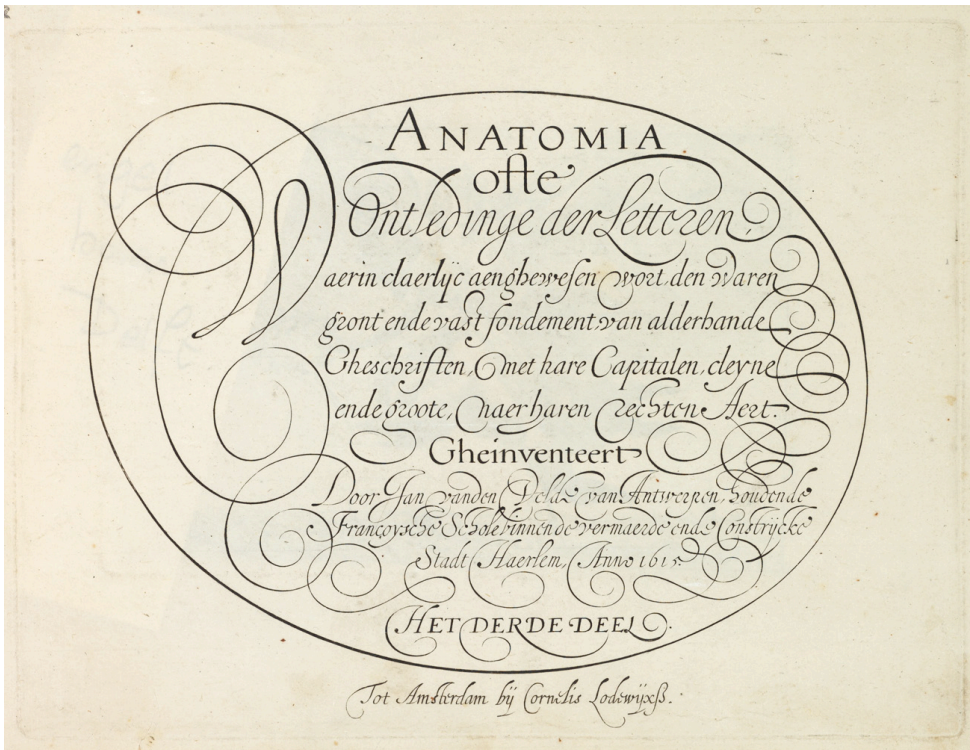 ANATOMIA
ofte
Ontledinge der Letteren,
Waerin claerlijc aenghewesen wort den waren
gront ende vast fondement van alderhande
Gheschriften, met hare Capitalen, cleyne
ende groote, naer haren rechten Aert.
Gheinventeert
Door Jan vanden Velde van Antwerpen, houdende
Françoysche Schole binnen de vermaerde ende Constrijcke
Stadt Haerlem, Anno 1615.
HET DERDE DEEL.
Tot Amsterdam bij Cornelis Lodewijxß.